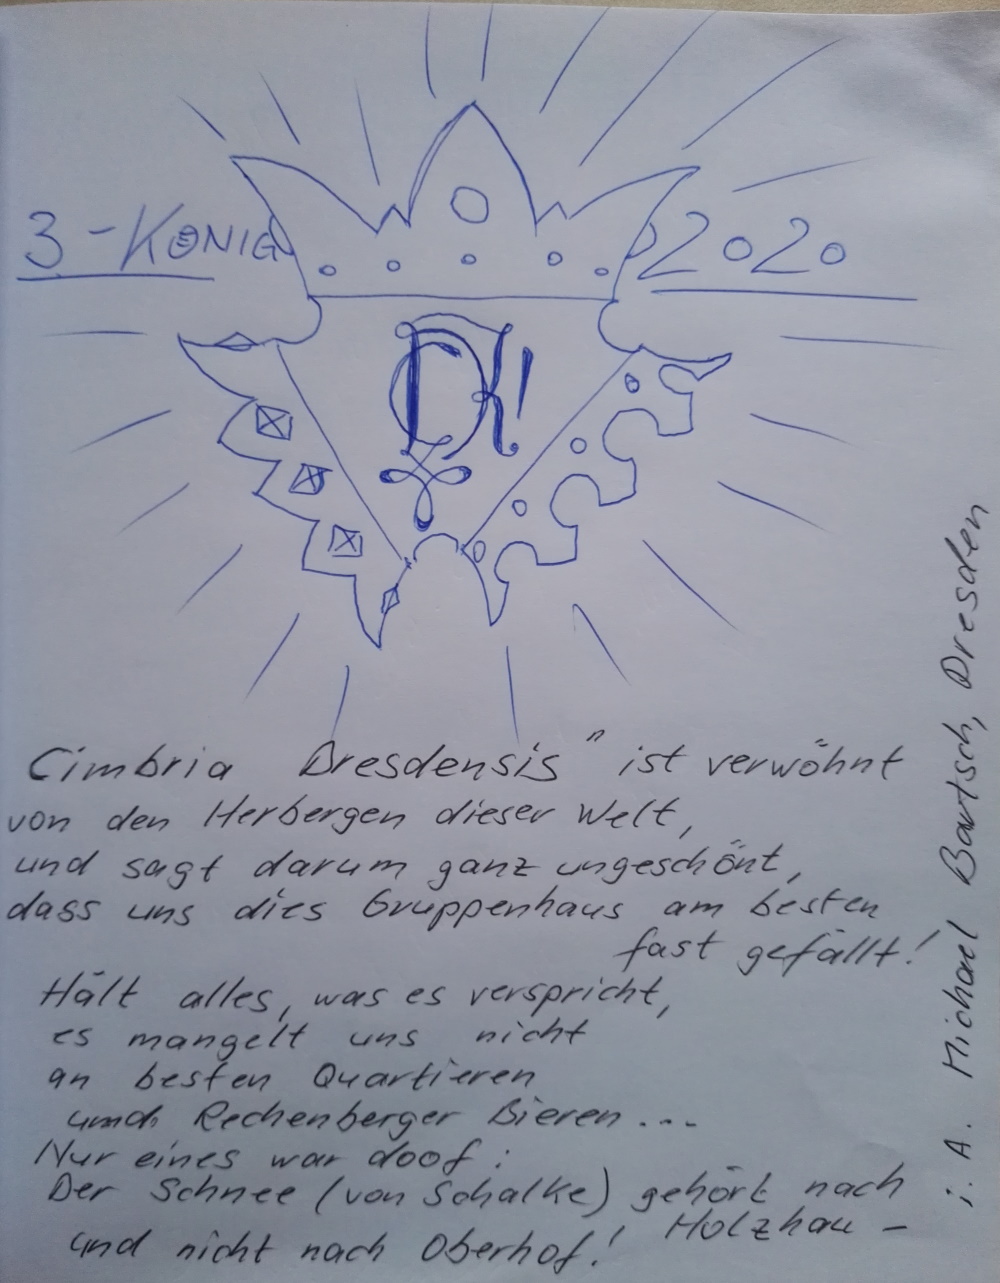 3-KÖNIG 2020
DK!
Cimbria Dresdensis" ist verwöhnt
von den Herbergen dieser Welt,
und sagt darum ganz ungeschönt,
dass uns dies Gruppenhaus am besten
fast gefällt!
Hält alles, was es verspricht,
es mangelt uns nicht
an besten Quartieren
und Rechenberger Bieren...
Nur eines war doof:
Der Schnee (von Schalke) gehört nach
Holzhau -
und nicht nach Oberhof!
i. A. Michael Bartsch, Dresden